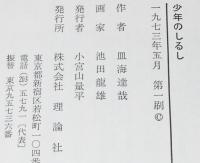 少年のしるし
一九七三年五月　第一刷©
作者　皿海達哉
画家　池田龍雄
発行者　小宮山量平
発行所　株式会社　理論社
東京都新宿区若松町一〇四番
電話（203）五七九一［代表］
振替　東京九五七三六番